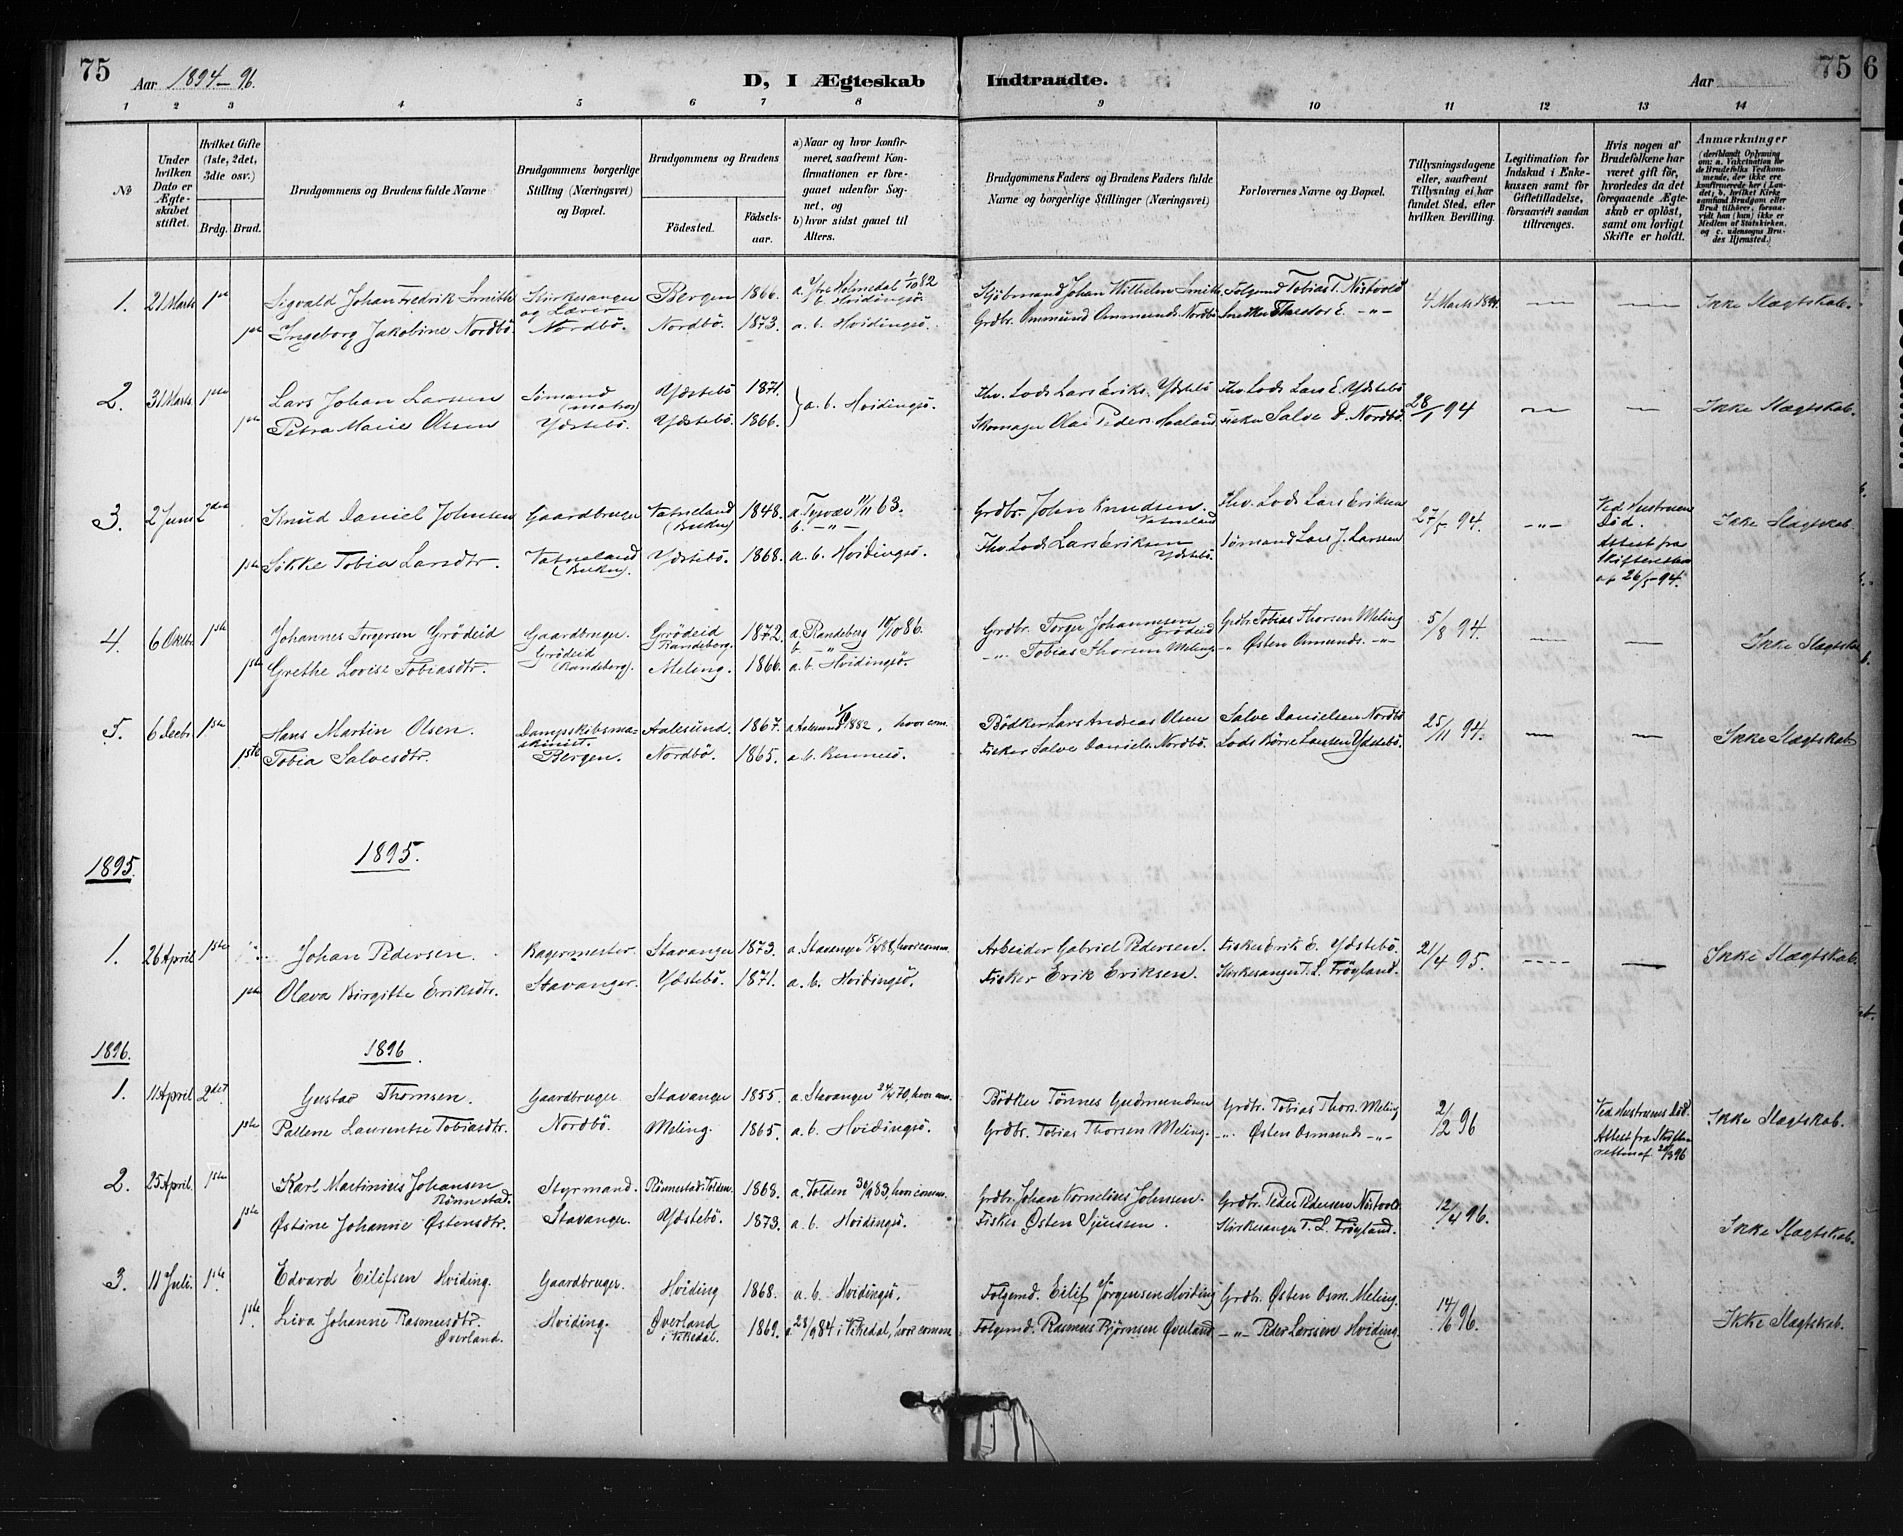 75
Aar 1894-96.
D, I Ægteskab
Indtraadte.
Aar
75
6
1 2 3 4 5 6 7 8 9 10 11 12 13 14
No
Under hvilken Dato er Ægteskabet stiftet.
Hvilket Gifte (1ste, 2det, 3die osv.)
Brdg. Brud.
Brudgommens og Brudens fulde Navne
Brudgommens borgerlige Stilling (Næringsvei) og Bopæl.
Brudgommens og Brudens
Fødested.
Fødselsaar.
a) Naar og hvor konfirmeret, saafremt Konfirmationen er foregaaet udenfor Sognet, og
b) hvor sidst gaaet til Alters.
Brudgommens Faders og Brudens Faders fulde Navne og borgerlige Stillinger (Næringsvei)
Forlovernes Navne og Bopæl.
Tillysningsdagene eller, saafremt Tillysning ei har fundet Sted, efter hvilken Bevilling.
Legitimation for Indskud i Enkekassen samt for Giftetilladelse, forsaavidt saadan tiltrænges.
Hvis nogen af Brudefolkene har været gift før, hvorledes da det foregaaende Ægteskab er opløst, samt om lovligt Skifte er holdt.
Anmærkninger
(deriblandt Oplysning om: a. Vakcination for de Brudefolks Vedkommende, der ikke ere konfirmerede her i Landet; b. hvilket Kirkesamfund Brudgom eller Brud tilhører, forsaavidt han (hun) ikke er Medlem af Statskirken, og c. udensogns Brudes Hjemsted.)
1. 21 Marts 1ste Sigvald Johan Fredrik Smith Kirkesanger og Lærer Bergen 1866. Holmedal b. Hvidingsö. Johan Wilhelm Smith. Folgemd Tobias T. Nistvold 4 Marts 1894. Ikke Slægtskab.
1ste Ingeborg Jakobine Nordbö Nordbö. Nordbö. 1873. a. b. Hvidingsö. Grdbr. Ommund Ommunds. Nordbö
2. 31 Marts 1ste Lars Johan Larsen Sömand (matros) Ydstebö 1871. a. b. Hvidingsö. Fhv. Lods Lars Eriks. Ydstebö Fhv. Lods Lars E. Ydstebö 28/1 94 Ikke Slægtskab.
1ste Petra Marie Olsen Ydstebö. Ydstebö. 1866. Skomager Olai Peders. Haaland Fisker Salve D. Nordbö.
3. 2 Juni 2det Knud Daniel Johnsen Gaardbruger Vatneland (Bukn) 1848. a. Tysvær 11/11 63. b. -"- Grdbr. John Knudsen Vatneland Fhv. Lods Lars Eriksen 27/5 94. Ved Hustruens Död. Attest fra Skifteretten af 26/5 94. Ikke Slægtskab.
1ste Sikke Tobia Larsdtr. Vatneland (Bukn). Ydstebö. 1868. a. b. Hvidingsö. Fhv. Lods Lars Eriksen Ydstebö. Sömand Lars J. Larssen
4. 6 Oktbr. 1ste Johannes Torgersen Grödeid Gaardbruger. Grödeid Randeberg. 1872. a. Randeberg 10/10 86. b. -"- Grdbr. Torger Johannesen Grödeid Grdbr. Tobias Thorsen Meling 5/8 94. Ikke Slægtskab
1ste Grethe Lovise Tobiasdtr. Grödeid (Randeberg). Meling. 1866. a. b. Hvidingsö. -"- Tobias Thorsen Meling. -"- Østen Osmunds. -"-
5. 6 Decbr. 1ste Hans Martin Olsen. Dampskibsmaskinist. Aalesund. 1867. a. Aalesund 1882, hvor com. Bödker Lars Andreas Olsen Salve Danielsen Nordbö 25/11 94. Ikke Slægtskab
1ste Tobia Salvesdtr. Bergen. Nordbö. 1865. a. b. Rennesö. Fisker Salve Daniels. Nordbö. Lods Börre Larsen Ydstebö.
1895. 1895.
1. 26 April 1ste Johan Pedersen. Bagermester. Stavanger 1873. a. Stavanger 15/4 88, hvor comm. Arbeider Gabriel Pedersen. Fisker Erik E. Ydstebö. 21/4 95. Ikke Slægtskab.
1ste Olava Birgitte Eriksdtr. Stavanger. Ydstebö. 1871. a. b. Hvidingsö. Fisker Erik Eriksen. Kirkesanger T. L. Fröyland.
1896. 1896
1. 11 April 2det Gustav Thomsen. Gaardbruger Stavanger 1855. a. Stavanger 24/4 70, hvor com. Bödker Tönnes Gudmundsen Grdbr. Tobias Thors. Meling 2/12 96 Ved Hustruens Död. Attest fra Skifteretten af 20/3 96 Ikke Slægtskab.
1ste Pallene Laurentse Tobiasdtr. Nordbö. Meling. 1865. a. b. Hvidingsö. Grdbr. Tobias Thorsen Meling. -"- Østen Osmunds -"-
2. 25 April. 1ste Karl Martinius Johansen Rönnestad. Styrmand. Rönnestad. Tolden. 1868. a. Tolden 30/9 83, hvor comm. Grdbr. Johan Kornelius Johnsen. Grdbr. Peder Pedersen Nistvold. 12/4 96. Ikke Slægtskab.
1ste Østine Johanne Østensdtr. Stavanger. Ydstebö. 1873. a. b. Hvidingsö. Fisker Østen Sjursen. Kirkesanger T. L. Fröyland.
3. 11 Juli. 1ste Edvard Eilifsen Hviding. Gaardbruger. Hviding 1868. a. b. Hvidingsö. Folgemd. Eilif Jörgensen Hviding Grdbr. Østen Osm. Meling. 14/6 96. Ikke Slægtskab.
1ste Liva Johanne Rasmusdtr. Øverland. Hviding. Øverland i Vikedal. 1869. a 28/9 84 i Vikedal, hvor comm Folgemd. Rasmus Bjørnsen Øverland -"- Peder Larssen Hviding.